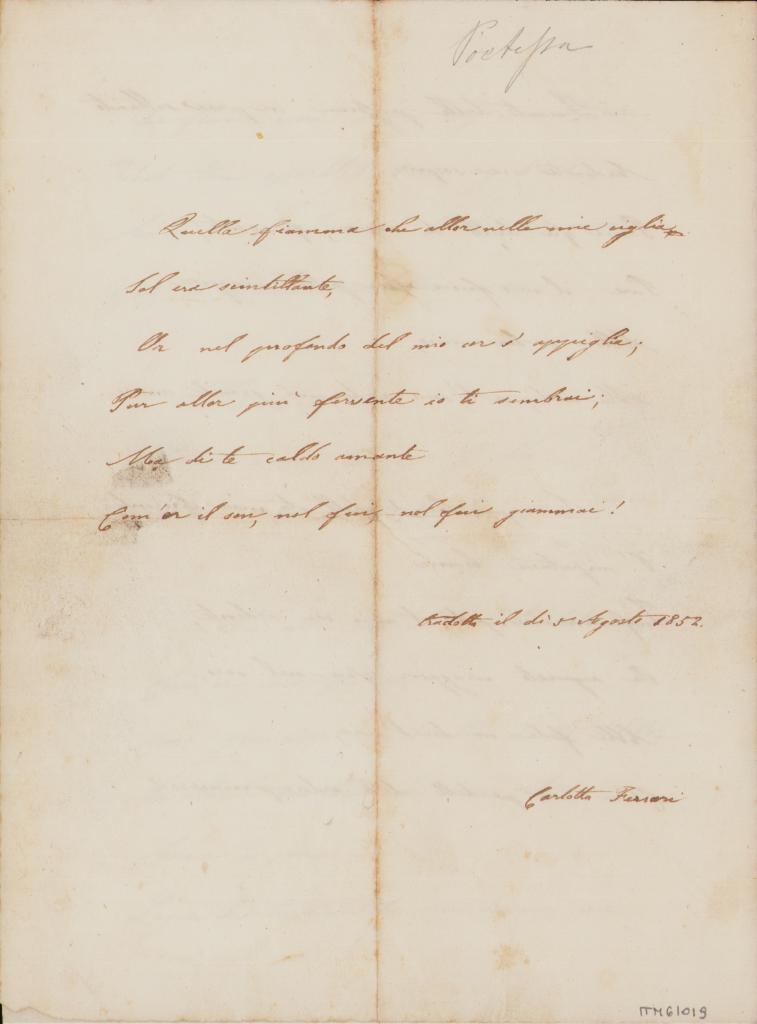 Poetessa
Quella fiamma che allor nelle mie ciglia
Sol era scintillante,
Or nel profondo del mio cor s'appiglia;
Pur allor più fervente io ti sembrai;
Ma di te caldo amante
Com'or il son, nol fui, nol fui giammai!
tradotta il dì 5 Agosto 1852.
Carlotta Ferrari
ITM61019